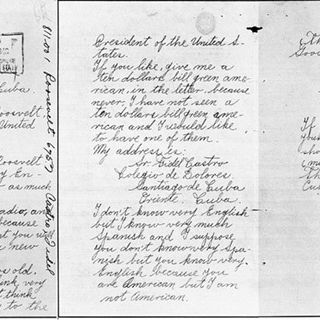 811.001 Roosevelt
uba.
oosevelt,
nited
oosevelt
ry En-
as much
adio, and
because
new
old.
ink very
think
to the
President of the United S-
tates.
If you like, give me a
ten dollars bill green ame-
rican, in the letter, because
never, I have not seen a
ten dollars bill green ame-
rican and I would like
to have one of them.
My address is:
Sr. Fidel Castro
Colegio de Dolores
Santiago de Cuba
Oriente, Cuba.
I don't know very English
but I know very much
Spanish and I suppose
you don't know very Spa-
nish but you know very
English because you
are American but I am
not American.
(Th
Good
If